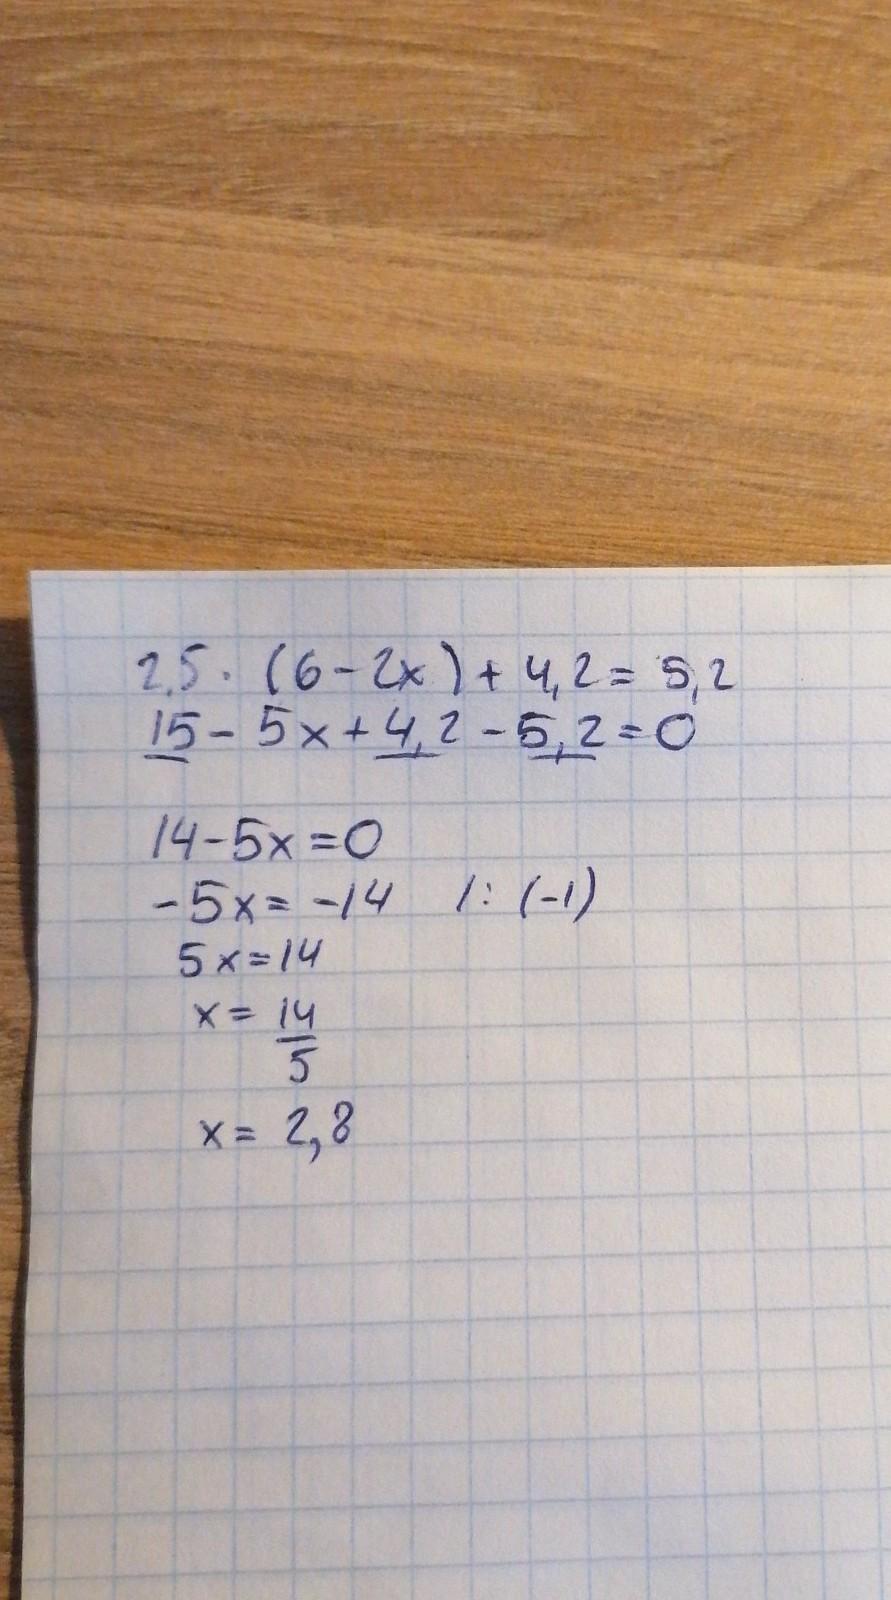 2,5 · (6 - 2x) + 4,2 = 5,2
15 - 5x + 4,2 - 5,2 = 0
14 - 5x = 0
-5x = -14 /: (-1)
5x = 14
x = 14/5
x = 2,8